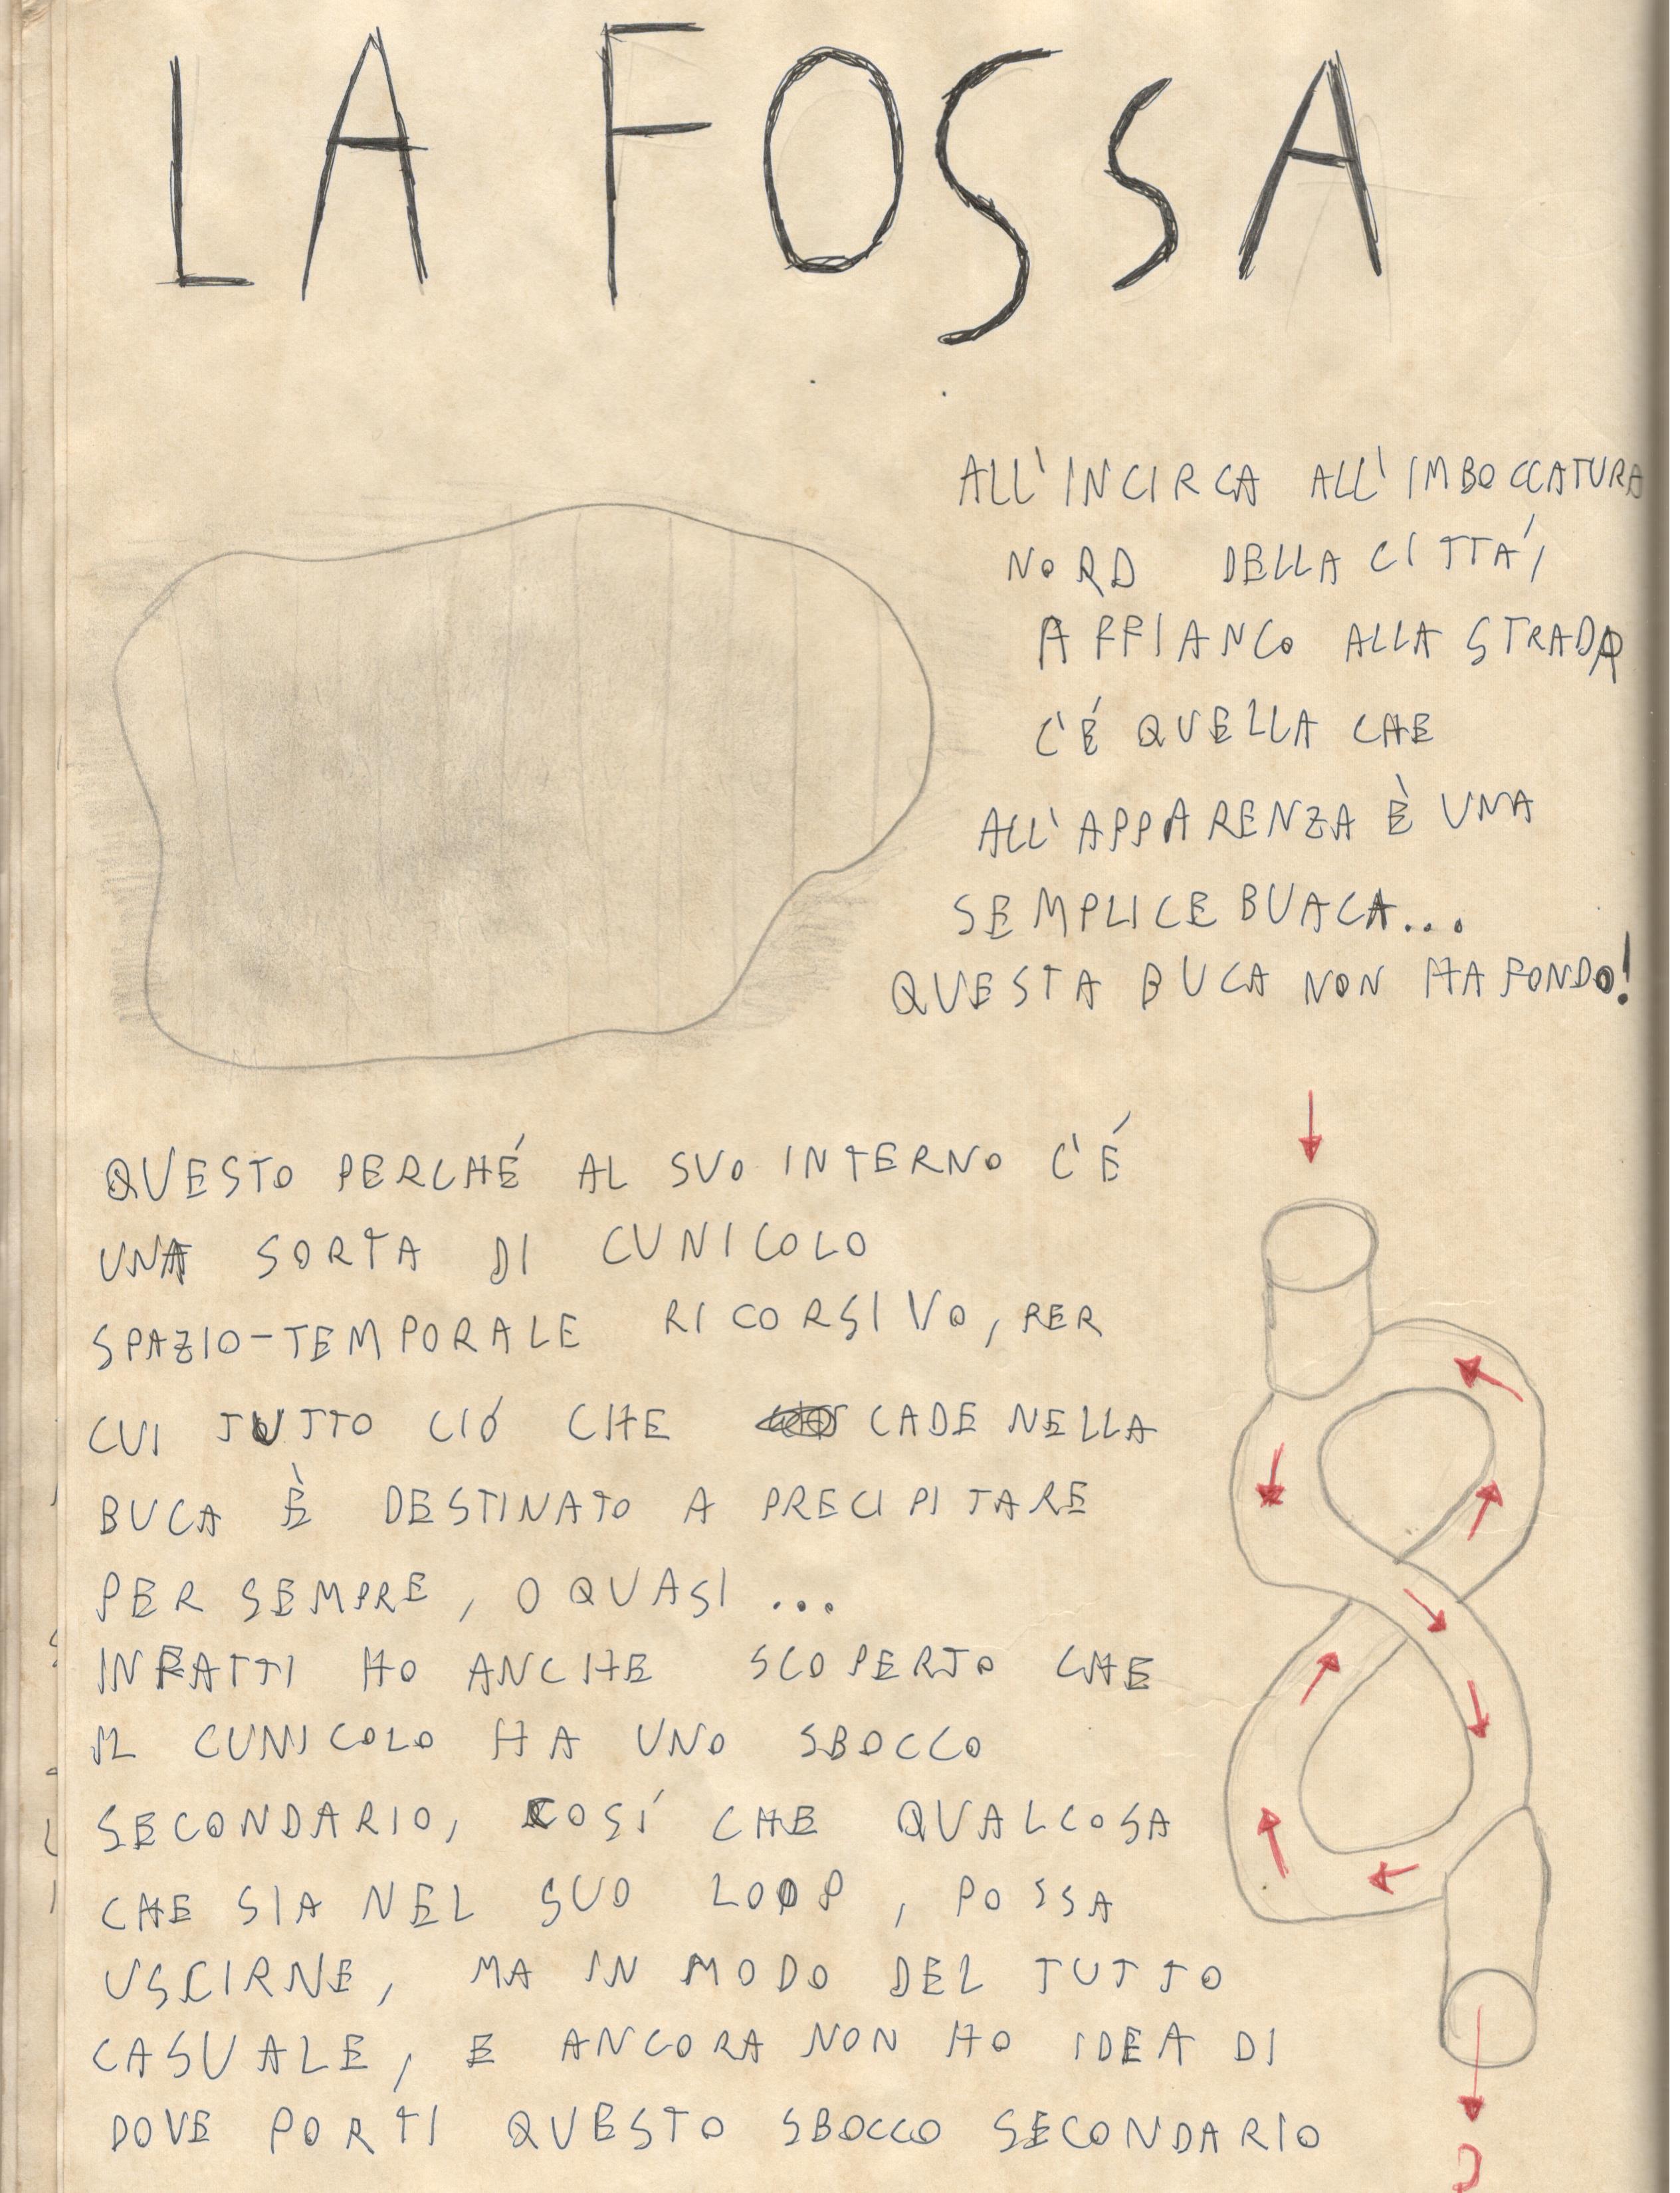 LA FOSSA
ALL'INCIRCA ALL'IMBOCCATURA
NORD DELLA CITTÁ,
AFFIANCO ALLA STRADA
C'É QUELLA CHE
ALL'APPARENZA È UNA
SEMPLICE BUACA...
QUESTA BUCA NON HA FONDO!
QUESTO PERCHÉ AL SUO INTERNO C'É
UNA SORTA DI CUNICOLO
SPAZIO-TEMPORALE RICORSIVO, PER
CUI TUTTO CIÓ CHE CADE NELLA
BUCA È DESTINATO A PRECIPITARE
PER SEMPRE, O QUASI...
INFATTI HO ANCHE SCOPERTO CHE
IL CUNICOLO HA UNO SBOCCO
SECONDARIO, COSÍ CHE QUALCOSA
CHE SIA NEL SUO LOOP, POSSA
USCIRNE, MA IN MODO DEL TUTTO
CASUALE, E ANCORA NON HO IDEA DI
DOVE PORTI QUESTO SBOCCO SECONDARIO
?